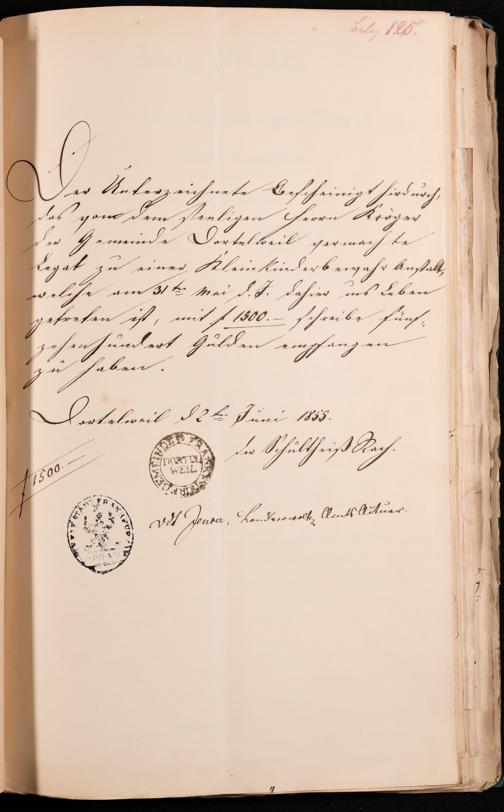 125.
Der Unterzeichnete bescheinigt hirdurch,
das vom dem seeligen Herrn Kröger
der Gemeinde Dortelweil vermachte
Legat zu einer Kleinkinderbewahr Anstalt,
welche am 31ten Mai d. J. dahier ins Leben
getreten ist, mit f 1500.- schreibe fünf-
zehenhundert Gulden empfangen
zu haben.
Dortelweil d 2ten Juni 1855.
der Schultheiß
f 1500.-
GEMEINDE DORTEL WEIL
vdt Amts Actuar.